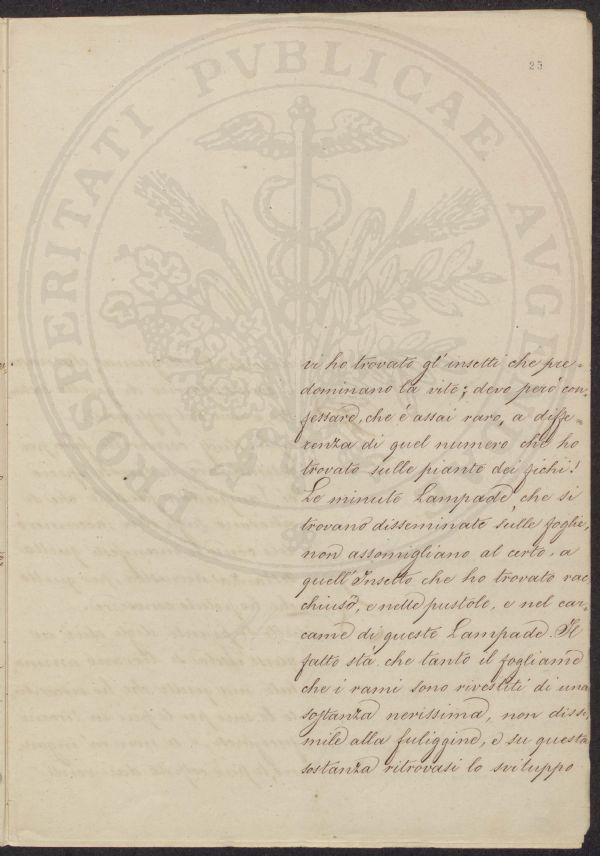 25
PROSPERITATI PVBLICAE AVGE
vi ho trovato gl'insetti che pre=
dominano la vite; devo però con=
fessare, che è assai raro, a diffe=
renza di quel numero che ho
trovato sulle piante dei fichi!
Le minute Lampade, che si
trovano disseminate sulle foglie,
non assomigliano al certo, a
quell'Insetto che ho trovato rac
chiuso, e nelle pustole, e nel car=
came di queste Lampade. Il
fatto stà che tanto il fogliame
che i rami sono rivestiti di una
sostanza nerissima, non dissi
mile alla fuliggine, e su questa
sostanza ritrovasi lo sviluppo